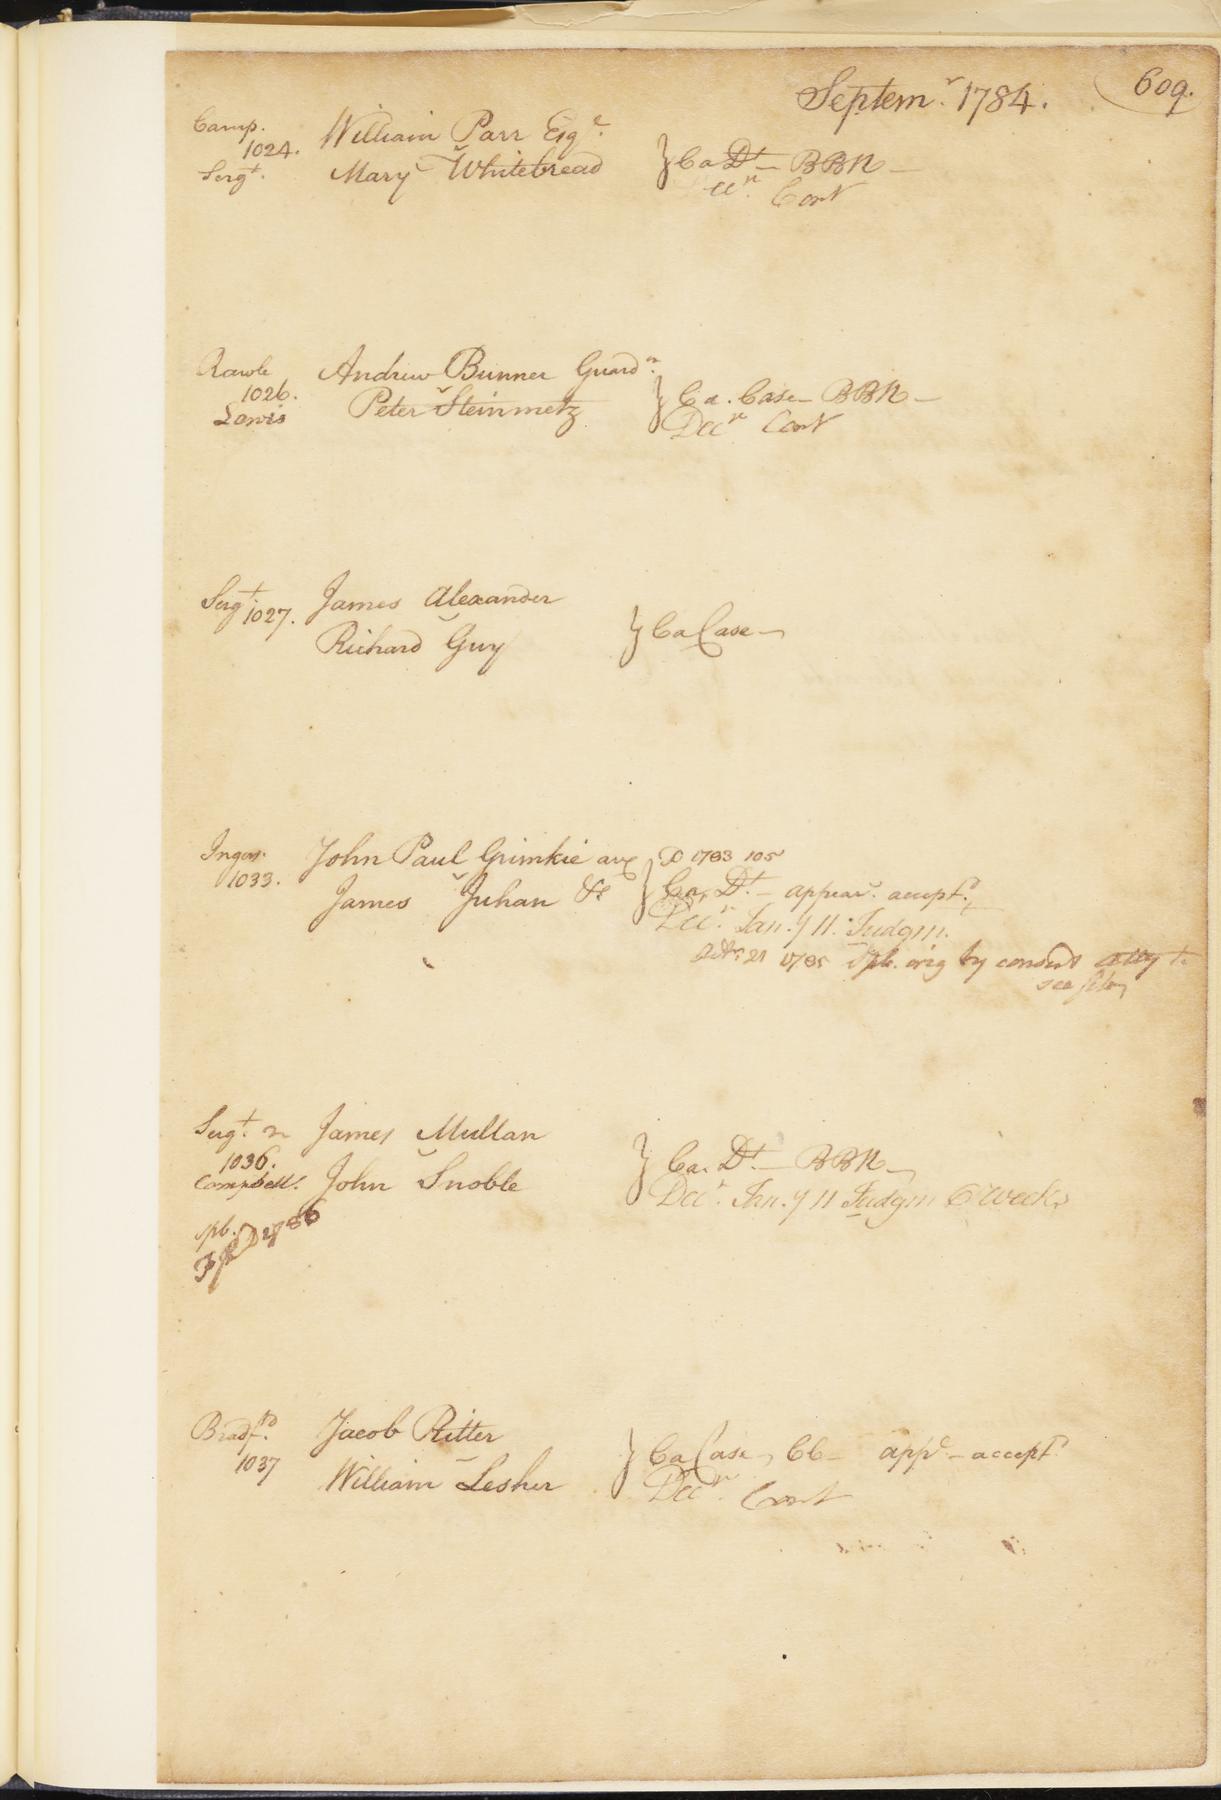 Septemr. 1784.
609.
Camp.
1024.
Sergt.
William Parr Esqr.
v
Mary Whitebread
} Ca Dt — BBN —
Decr. Cont
Rawle
1026.
Lewis
Andrew Bunner Guardn.
v
Peter Steinmetz
} Ca. Case — BBN —
Decr Cont
Sergt.
1027.
James Alexander
v
Richard Guy
} Ca Case —
Ingers.
1033.
John Paul Grimkie
v
James Juhan &c
} D 1783 105
Ca. Dt — appear. accept.
Decr. Jan. 11. Judgm.
21 1785 orig by consent atty
see
Sergt.
1036.
Campbell.
James Mullan
v
John Snoble
} Ca. Dt. — BBN —
Decr. Jan. 11 Judgm 6 Weeks
Bradfd.
1037
Jacob Ritter
v
William Lesher
} Ca Case, Cb — appd — accept
Decr. Cont